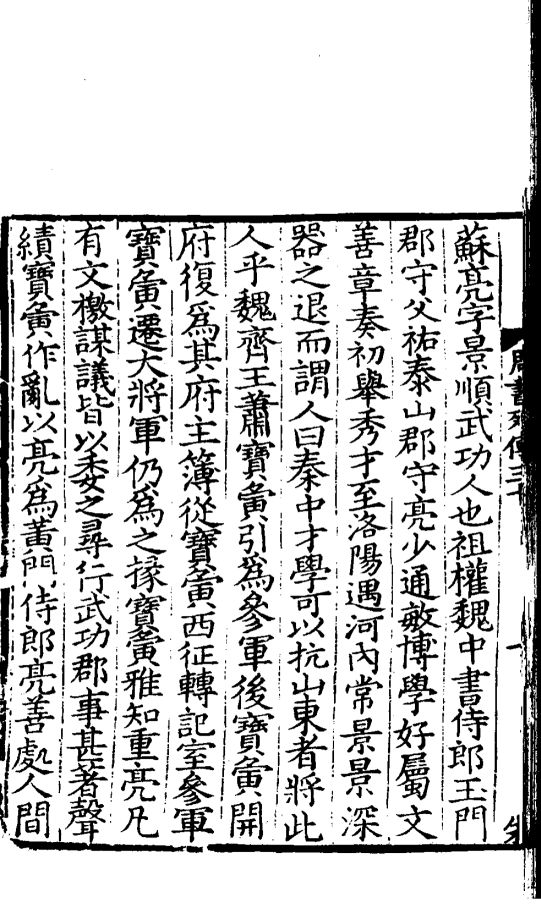 蘇亮字景順武功人也祖權魏中書侍郎玉門
郡守父祐泰山郡守亮少通敏博學好屬文
善章奏初舉秀才至洛陽遇河內常景景深
器之退而謂人曰秦中才學可以抗山東者將此
人乎魏齊王蕭寶夤引爲參軍後寶夤開
府復爲其府主簿從寶夤西征轉記室參軍
寶夤遷大將軍仍爲之掾寶夤雅知重亮凡
有文檄謀議皆以委之尋行武功郡事甚著聲
績寶夤作亂以亮爲黃門侍郎亮善處人間